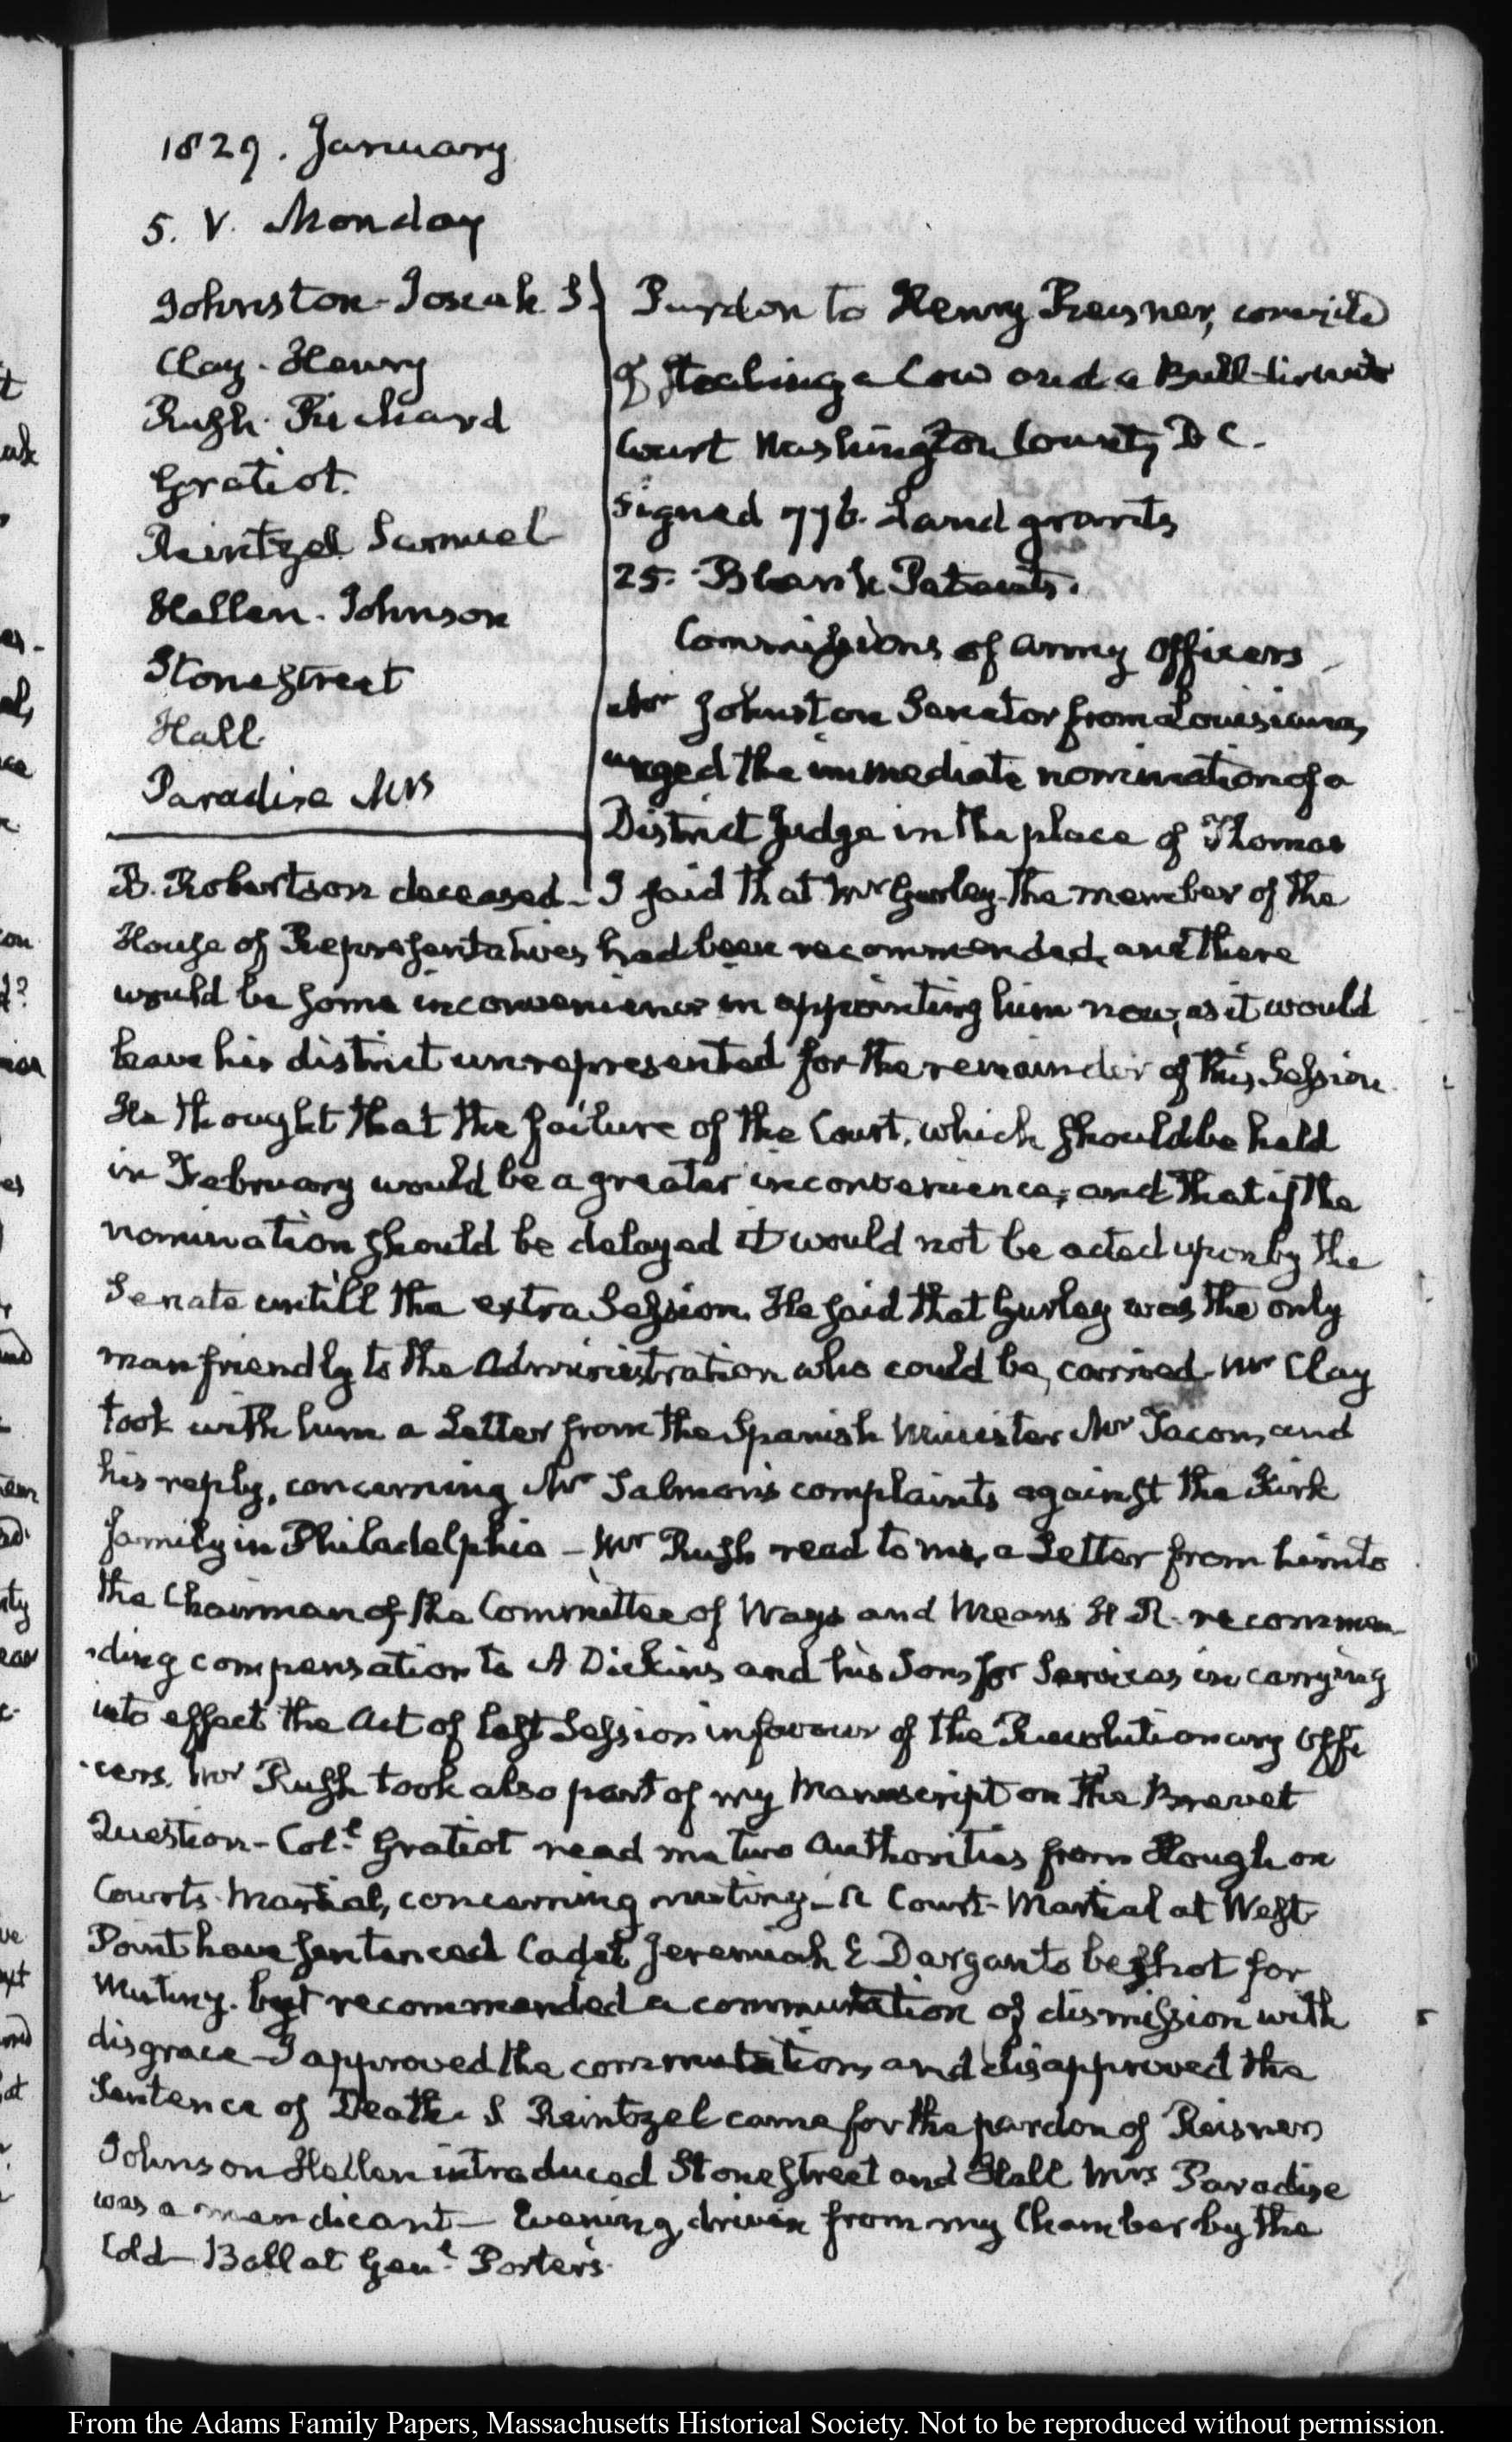 1829. January
5. V. Monday
Johnston - Josiah S.
Clay. Henry
Rush. Richard
Gratiot.
Reintzel Samuel
Hellen. Johnson
Stonestreet
Hall.
Paradise Mrs
Pardon to Henry Reisner, convicted
of stealing a Cow and a Bull - Circuit
Court Washington County, D C.
Signed 776. Land grants
25. Blank Patents.
Commissions of army officers
Mr Johnston Senator from Louisiana,
urged the immediate nomination of a
District Judge in the place of Thomas
B. Robertson deceased - I said that Mr Gurley the member of the
House of Representatives had been recommended, and there
would be some inconvenience in appointing him now, as it would
leave his district unrepresented for the remainder of this Session.
He thought that the failure of the Court, which should be held
in February would be a greater inconvenience; and that if the
nomination should be delayed it would not be acted upon by the
Senate untill the extra Session. He said that Gurley was the only
man friendly to the Administration who could be, carried - Mr Clay
took with him a Letter from the Spanish Minister Mr Tacon, and
his reply, concerning Mr Salmon's complaints against the Kirk
family in Philadelphia - Mr Rush read to me, a Letter from him to
the Chairman of the Committee of Ways and Means H. R. recommen-
-ding compensation to A Dickins and his Sons for Services in carrying
into effect the Act of last Session in favour of the Revolutionary Offi
-cers. Mr Rush took also part of my Manuscript on the Brevet
Question - Coll. Gratiot read me two Authorities from Hough on
Courts-Martial, concerning mutiny - A Court-Martial at West-
Point have sentenced Cadet Jeremiah E Dargan to be shot for
Mutiny. but recommended a commutation of dismission with
disgrace - I approved the commutation, and disapproved the
Sentence of Death. S Reintzel came for the pardon of Reisner,
Johnson Hellen introduced Stonestreet and Hall Mrs Paradise
was a mendicant - Evening, driven from my Chamber by the
Cold - Ball at Genl. Porter's.
From the Adams Family Papers, Massachusetts Historical Society. Not to be reproduced without permission.